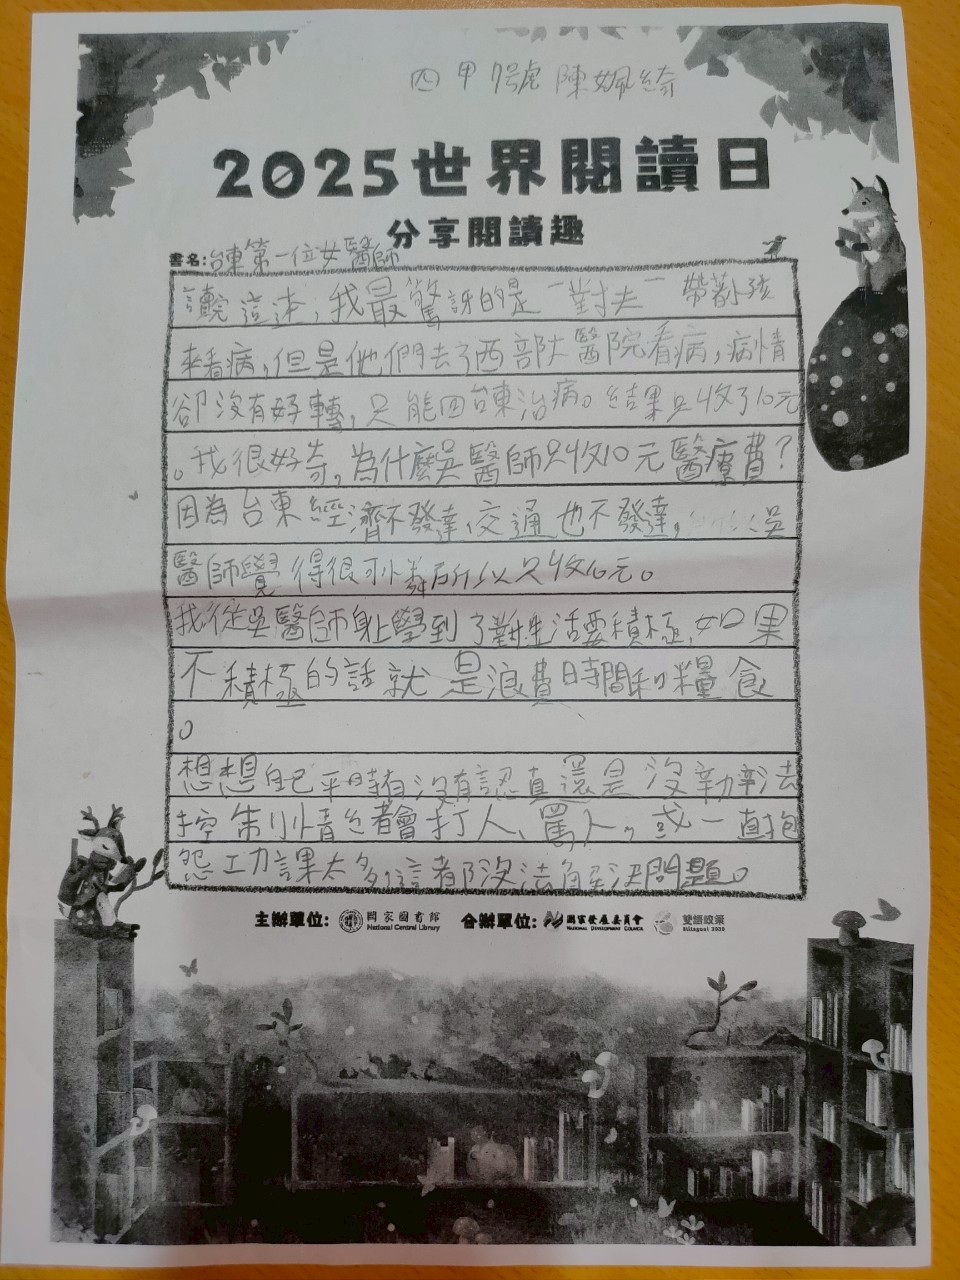 四甲7號 陳姵綺
2025世界閱讀日
分享閱讀趣
書名:台東第一位女醫師
讀完這本,我最驚訝的是一對夫一帶著孩
來看病,但是他們去了西部大醫院看病,病情
卻沒有好轉,只能回台東治病。結果只收了10元
。我很好奇,為什麼吳醫師只收10元醫療費?
因為台東經濟不發達,交通也不發達,所以吳
醫師覺得很可憐所以只收10元。
我從吳醫師身上學到了對生活要積極,如果
不積極的話就是浪費時間和糧食
。
想想自己平時有沒有認真還是沒辦法
控制小情緒會打人、罵人,或一直抱
怨工力課太多,這都沒法解決問題。
主辦單位: 國家圖書館 National Central Library 合辦單位: 國家發展委員會 National Development Council 雙語政策 Bilingual 2030